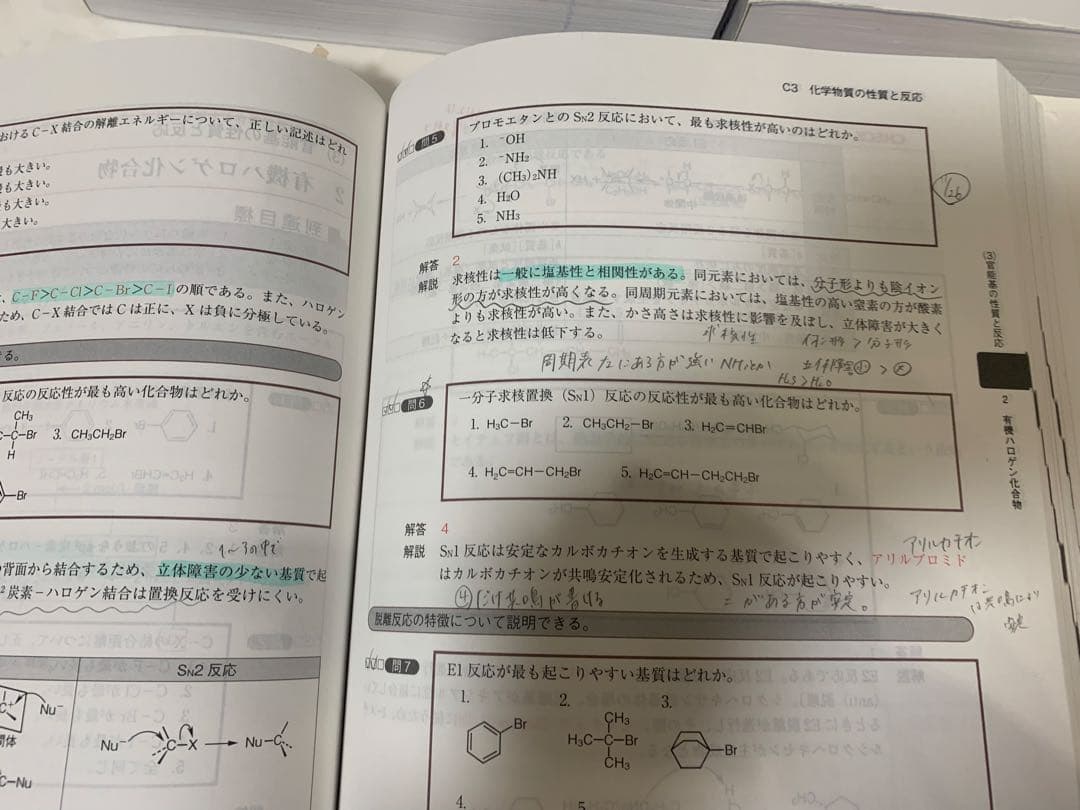 おけるC-X結合の解離エネルギーについて、正しい記述はどれ
も大きい。
も大きい。
も大きい。
大きい。
C-F>C-Cl>C-Br>C-Iの順である。また、ハロゲン
ため、C-X結合ではCは正に、Xは負に分極している。
る。
反応の反応性が最も高い化合物はどれか。
CH₃
C-C-Br 3. CH₃CH₂Br
H
Br
1〜3の中で
背面から結合するため、立体障害の少ない基質で起
²炭素-ハロゲン結合は置換反応を受けにくい。
SN2 反応
Nu⁻
間体
Nu⁻ C-X → Nu-C
C-Nu
C3 化学物質の性質と反応
問5 ブロモエタンとのSN2反応において、最も求核性が高いのはどれか。
1. ⁻OH
2. ⁻NH₂
3. (CH₃)₂NH
4. H₂O
5. NH₃
1/26
解答 2
解説 求核性は一般に塩基性と相関性がある。同元素においては、分子形よりも陰イオン
形の方が求核性が高くなる。同周期元素においては、塩基性の高い窒素の方が酸素
よりも求核性が高い。また、かさ高さは求核性に影響を及ぼし、立体障害が大きく
なると求核性は低下する。
求核性 イオン形 > 分子形
周期表 左にある方が強い NH₂とか 立体障害小 > 大
H₂S > H₂O
問6 一分子求核置換（SN1）反応の反応性が最も高い化合物はどれか。
1. H₃C-Br 2. CH₃CH₂-Br 3. H₂C=CHBr
4. H₂C=CH-CH₂Br 5. H₂C=CH-CH₂CH₂Br
解答 4
解説 SN1反応は安定なカルボカチオンを生成する基質で起こりやすく、アリルブロミド
はカルボカチオンが共鳴安定化されるため、SN1反応が起こりやすい。
アリルカチオン
④だけ共鳴が書ける
= がある方が安定。
アリルカチオン
は共鳴により
安定
脱離反応の特徴について説明できる。
問7 E1反応が最も起こりやすい基質はどれか。
1. 2. 3.
Br
CH₃
H₃C-C-Br
CH₃
Br
4. 5.
(3)官能基の性質と反応
2 有機ハロゲン化合物